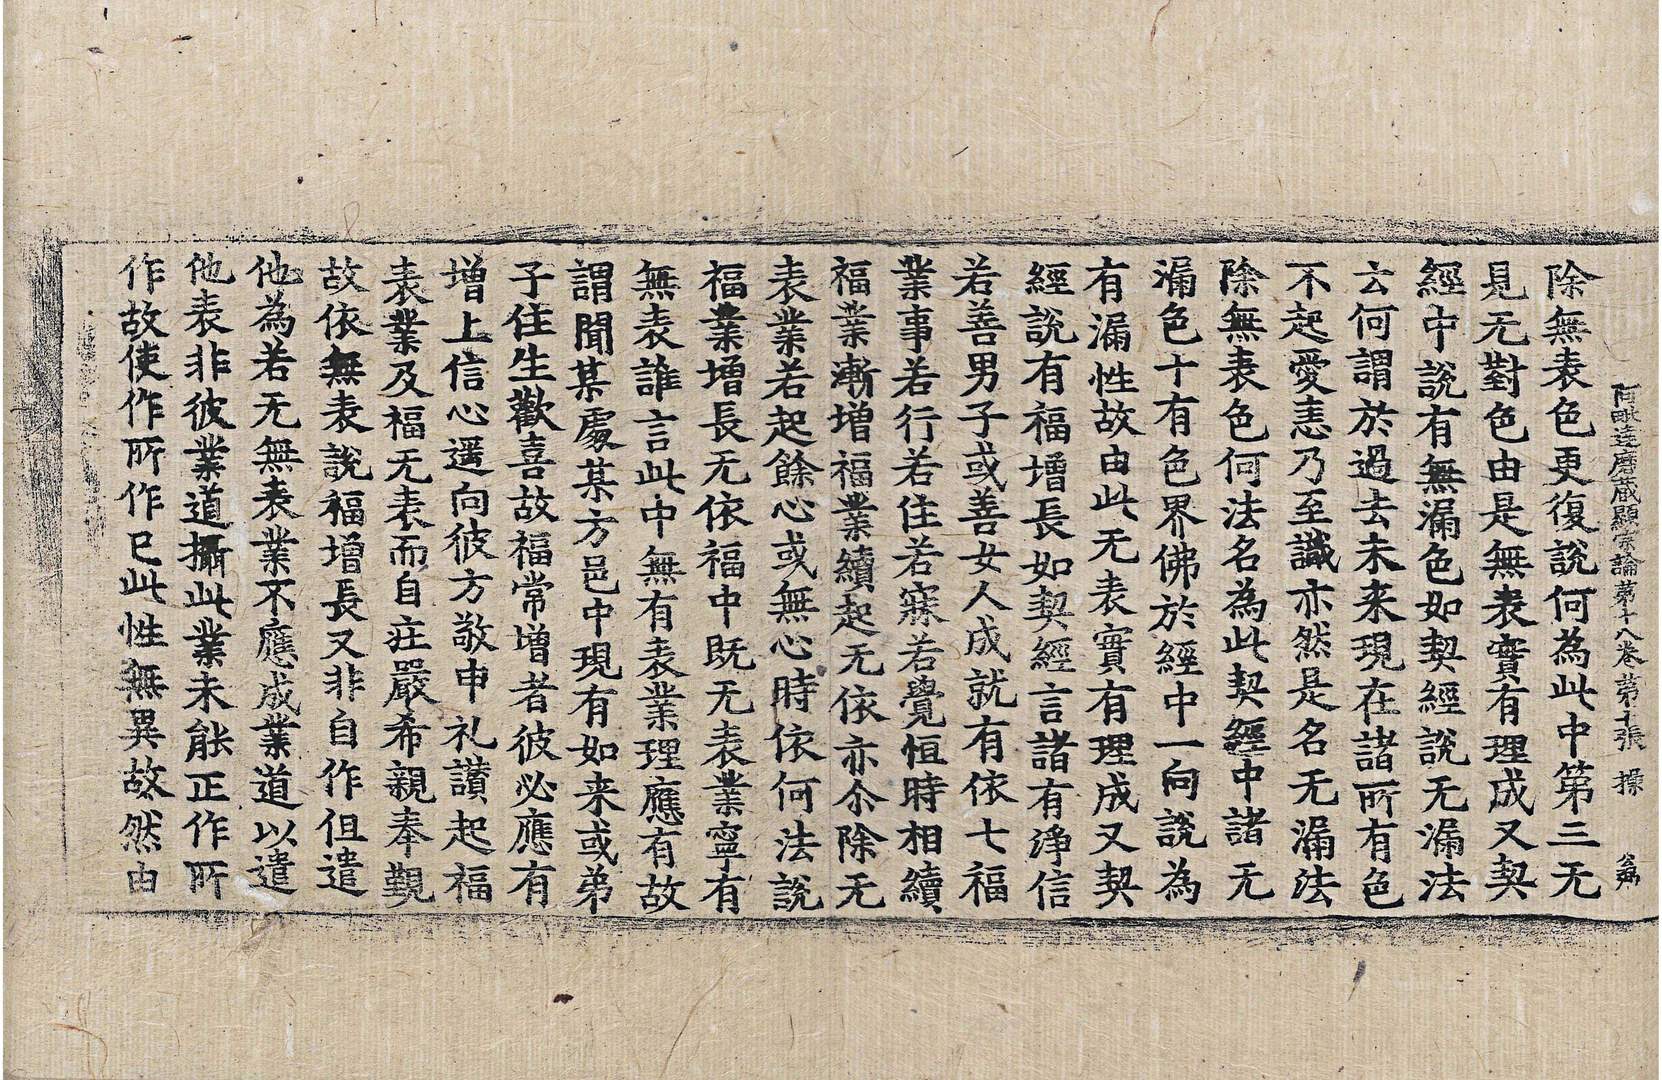 阿毗達磨藏顯宗論第十八卷第十張 操
除無表色更復說何為此中第三无
見无對色由是無表實有理成又契
經中說有無漏色如契經說无漏法
云何謂於過去未来現在諸所有色
不起愛恚乃至識亦然是名无漏法
除無表色何法名為此契經中諸无
漏色十有色界佛於經中一向說為
有漏性故由此无表實有理成又契
經說有福增長如契經言諸有淨信
若善男子或善女人成就有依七福
業事若行若住若寐若覺恒時相續
福業漸增福業續起无依亦尒除无
表業若起餘心或無心時依何法說
福業增長无依福中既无表業寧有
無表誰言此中無有表業理應有故
謂聞某處某方邑中現有如来或弟
子住生歡喜故福常增者彼必應有
增上信心遥向彼方敬申礼讃起福
表業及福无表而自莊嚴希親奉覲
故依無表說福增長又非自作但遣
他為若无無表業不應成業道以遣
他表非彼業道攝此業未能正作所
作故使作所作已此性無異故然由